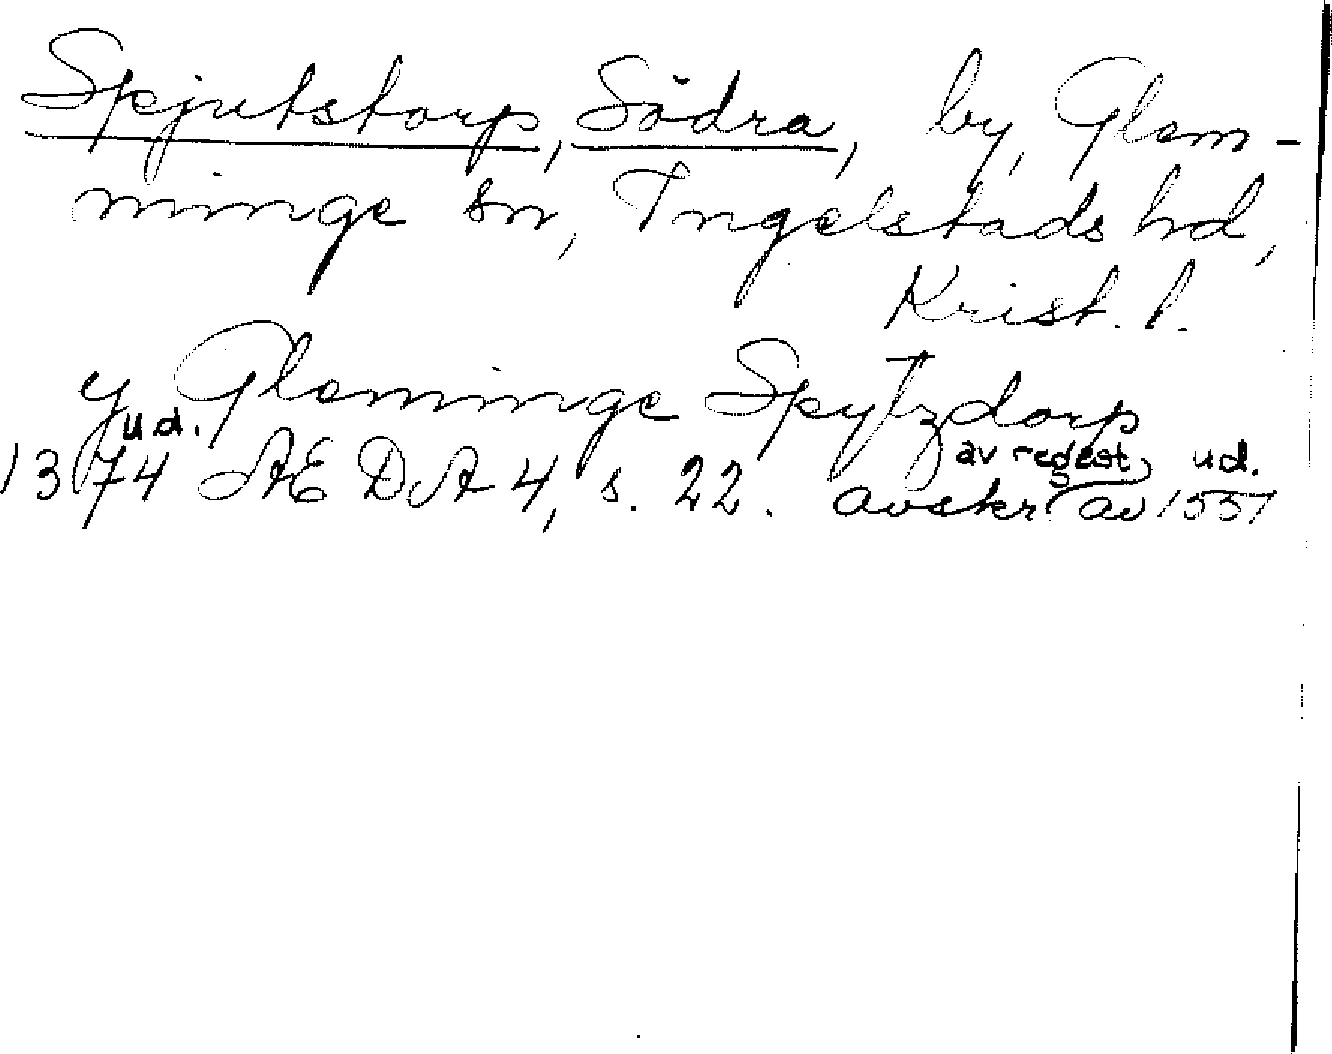 Spjutstorp, Södra, by, Glem-
minge sn, Ingelstads hd,
Krist. l.
y Gleminge Spytzdorp
u.d.
av regest, ud.
1374 ÆDA 4, s. 22. avskr av 1551